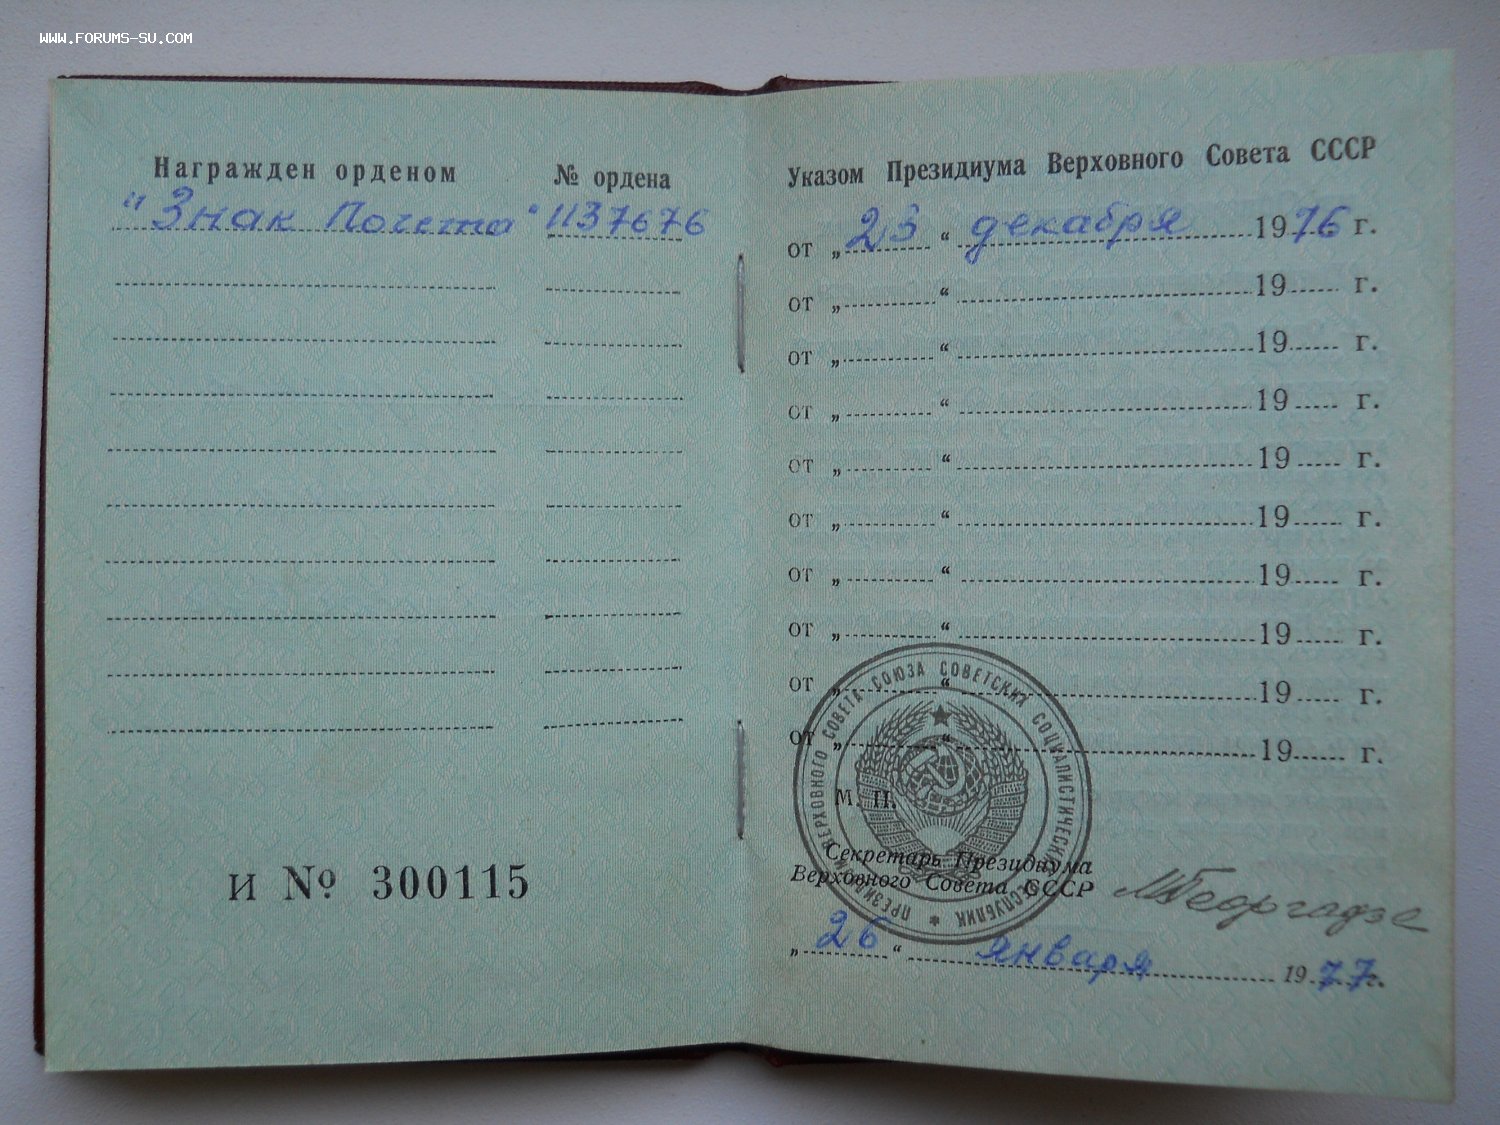 WWW.FORUMS-SU.COM
Награжден орденом № ордена
"Знак Почета" 1137676
И № 300115
Указом Президиума Верховного Совета СССР
от „ 23 “ декабря 1976 г.
от „ “ 19 г.
от „ “ 19 г.
от „ “ 19 г.
от „ “ 19 г.
от „ “ 19 г.
от „ “ 19 г.
от „ “ 19 г.
от „ “ 19 г.
от „ “ 19 г.
М. П.
ПРЕЗИДИУМ ВЕРХОВНОГО СОВЕТА СОЮЗА СОВЕТСКИХ СОЦИАЛИСТИЧЕСКИХ РЕСПУБЛИК *
Секретарь Президиума
Верховного Совета СССР МГеоргадзе
„ 26 “ января 1977 г.